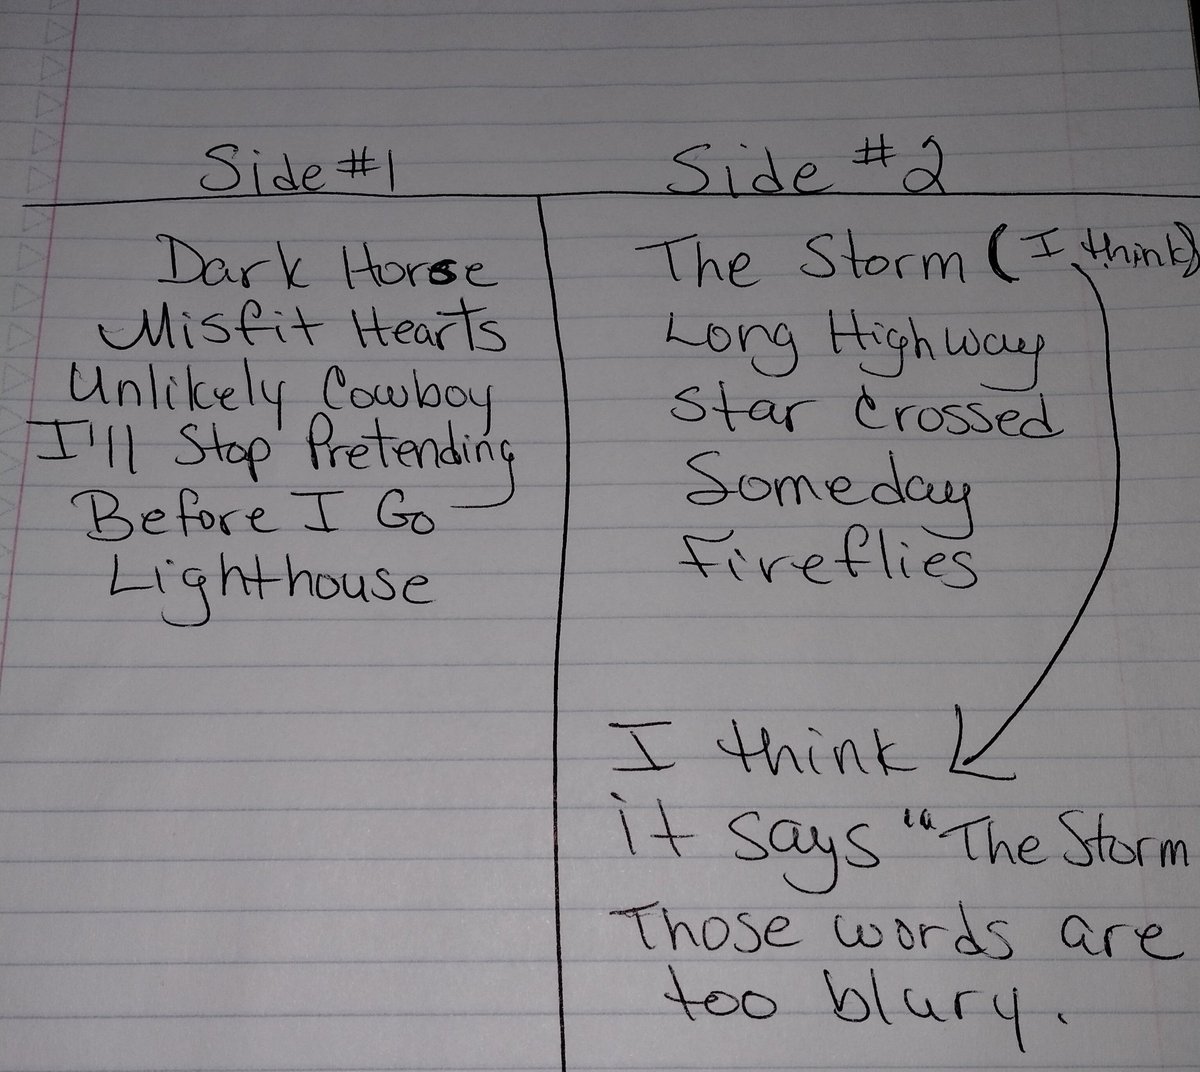 Side #1
Dark Horse
Misfit Hearts
Unlikely Cowboy
I'll Stop Pretending
Before I Go
Lighthouse
Side #2
The Storm (I think)
Long Highway
Star Crossed
Someday
Fireflies
I think
it says "“The Storm
Those words are
too blury.